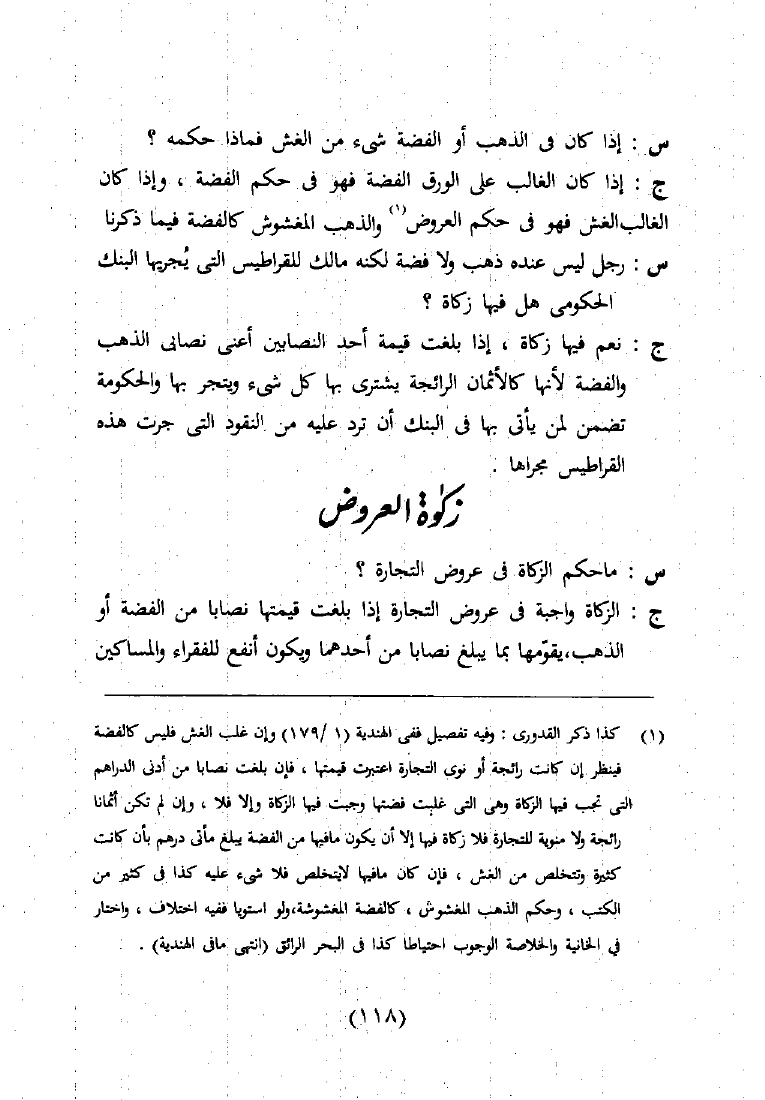 س : إذا كان فى الذهب أو الفضة شىء من الغش فماذا حكمه ؟
ج : إذا كان الغالب على الورق الفضة فهو فى حكم الفضة ، وإذا كان
الغالب الغش فهو فى حكم العروض(١) والذهب المغشوش كالفضة فيما ذكرنا
س : رجل ليس عنده ذهب ولا فضة لكنه مالك للقراطيس التى يُجريها البنك
الحكومى هل فيها زكاة ؟
ج : نعم فيها زكاة ، إذا بلغت قيمة أحد النصابين أعنى نصابى الذهب
والفضة لأنها كالأثمان الرائجة يشترى بها كل شىء ويتجر بها والحكومة
تضمن لمن يأتى بها فى البنك أن ترد عليه من النقود التى جرت هذه
القراطيس مجراها .
زكوٰة العروض
س : ماحكم الزكاة فى عروض التجارة ؟
ج : الزكاة واجبة فى عروض التجارة إذا بلغت قيمتها نصابا من الفضة أو
الذهب،يقوّمها بما يبلغ نصابا من أحدهما ويكون أنفع للفقراء والمساكين
(١) كذا ذكر القدورى : وفيه تفصيل ففى الهندية (١ /١٧٩) وإن غلب الغش فليس كالفضة
فينظر إن كانت رائجة أو نوى التجارة اعتبرت قيمتها ، فإن بلغت نصابا من أدنى الدراهم
التى تجب فيها الزكاة وهى التى غلبت فضتها وجبت فيها الزكاة وإلا فلا ، وإن لم تكن أثمانا
رائجة ولا منوية للتجارة فلا زكاة فيها إلا أن يكون مافيها من الفضة يبلغ مأتى درهم بأن كانت
كثيرة وتتخلص من الغش ، فإن كان مافيها لايتخلص فلا شىء عليه كذا فى كثير من
الكتب ، وحكم الذهب المغشوش ، كالفضة المغشوشة،ولو استويا ففيه اختلاف ، واختار
في الخانية والخلاصة الوجوب احتياطا كذا فى البحر الرائق (انتهى مافى الهندية) .
(١١٨)